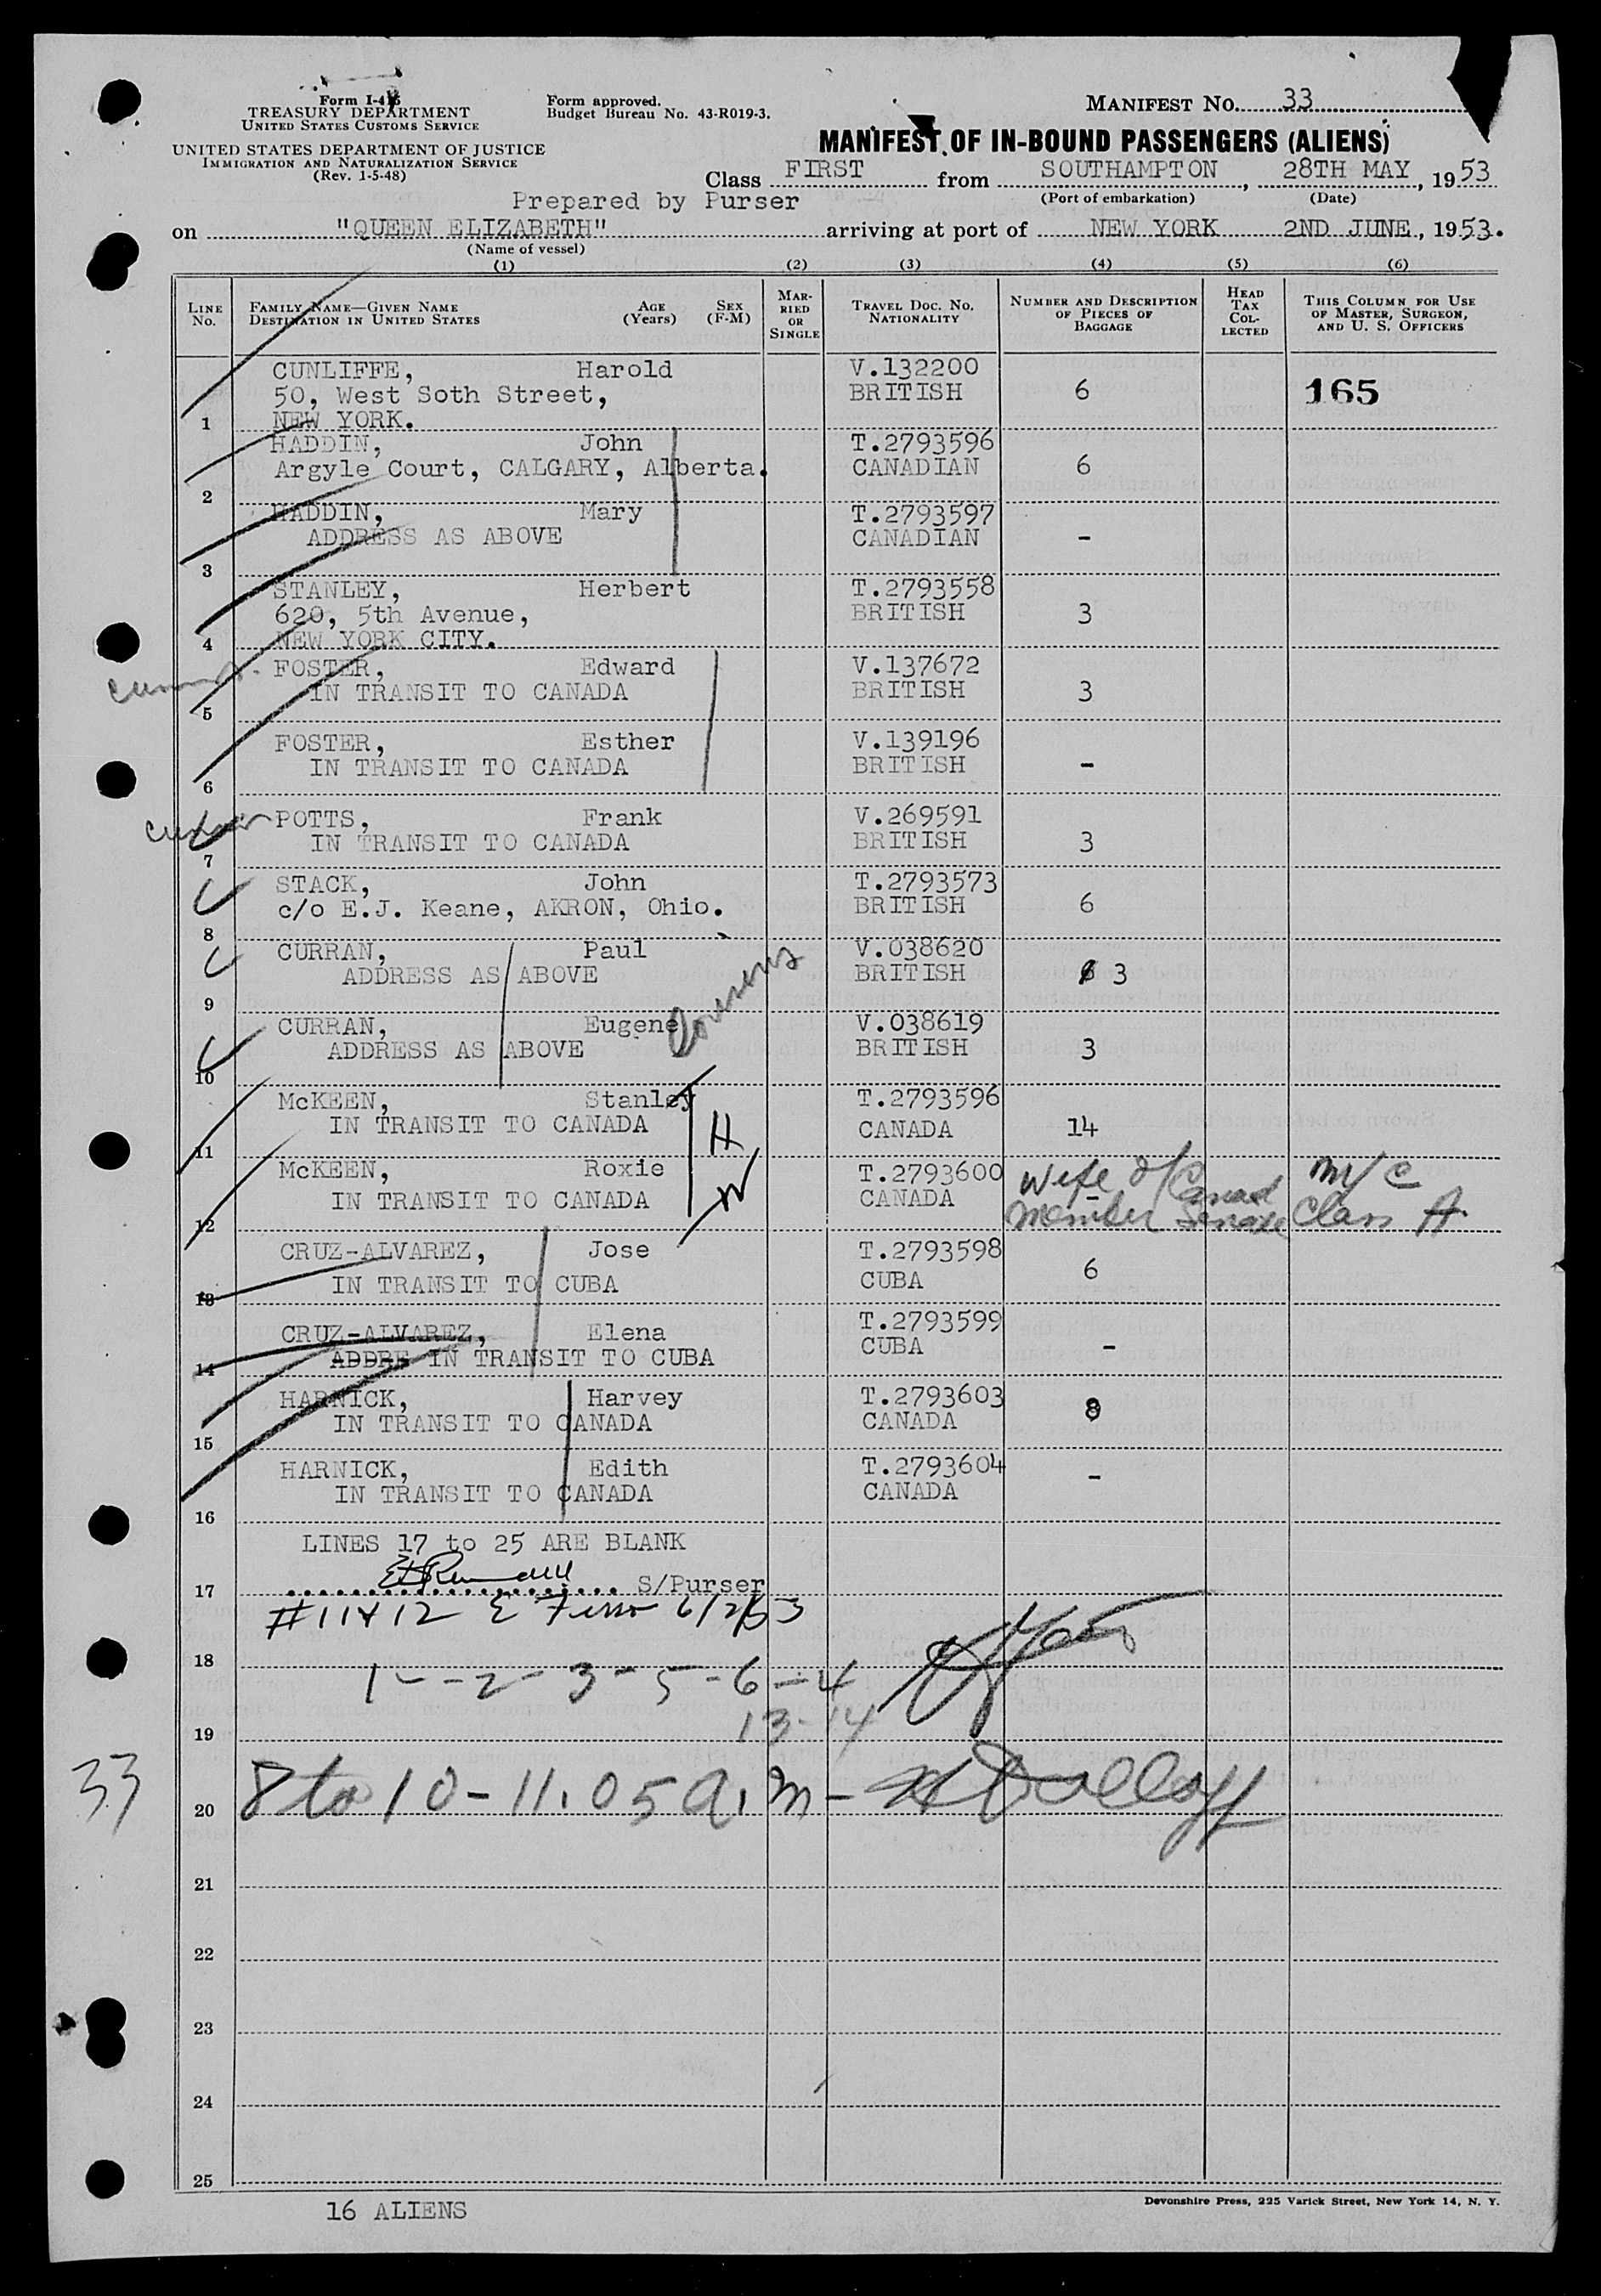 Form I-415
TREASURY DEPARTMENT
UNITED STATES CUSTOMS SERVICE
UNITED STATES DEPARTMENT OF JUSTICE
IMMIGRATION AND NATURALIZATION SERVICE
(Rev. 1-5-48)
Form approved.
Budget Bureau No. 43-R019-3.
MANIFEST NO. 33
MANIFEST OF IN-BOUND PASSENGERS (ALIENS)
Class FIRST from SOUTHAMPTON, 28TH MAY, 1953
(Port of embarkation) (Date)
Prepared by Purser
on "QUEEN ELIZABETH" arriving at port of NEW YORK 2ND JUNE, 1953.
(Name of vessel)
(1) (2) (3) (4) (5) (6)
LINE NO. FAMILY NAME—GIVEN NAME DESTINATION IN UNITED STATES AGE (Years) SEX (F-M) MARRIED OR SINGLE TRAVEL DOC. NO. NATIONALITY NUMBER AND DESCRIPTION OF PIECES OF BAGGAGE HEAD TAX COLLECTED THIS COLUMN FOR USE OF MASTER, SURGEON, AND U. S. OFFICERS
CUNLIFFE, Harold V.132200
50, West Soth Street, BRITISH 6 165
1 NEW YORK.
HADDIN, John T.2793596
Argyle Court, CALGARY, Alberta. CANADIAN 6
2
HADDIN, Mary T.2793597
ADDRESS AS ABOVE CANADIAN -
3
STANLEY, Herbert T.2793558
620, 5th Avenue, BRITISH 3
4 NEW YORK CITY.
FOSTER, Edward V.137672
IN TRANSIT TO CANADA BRITISH 3
5
FOSTER, Esther V.139196
IN TRANSIT TO CANADA BRITISH -
6
POTTS, Frank V.269591
IN TRANSIT TO CANADA BRITISH 3
7
STACK, John T.2793573
c/o E.J. Keane, AKRON, Ohio. BRITISH 6
8
CURRAN, Paul V.038620
ADDRESS AS ABOVE BRITISH 6 3
9
CURRAN, Eugene V.038619
ADDRESS AS ABOVE BRITISH 3
10
Cousens
McKEEN, Stanley T.2793596
IN TRANSIT TO CANADA H CANADA 14
11
McKEEN, Roxie T.2793600 Wife of Canad M/C
IN TRANSIT TO CANADA W CANADA - Member Senate Class A
12
CRUZ-ALVAREZ, Jose T.2793598
IN TRANSIT TO CUBA CUBA 6
13
CRUZ-ALVAREZ, Elena T.2793599
ADDRE IN TRANSIT TO CUBA CUBA -
14
HARNICK, Harvey T.2793603
IN TRANSIT TO CANADA CANADA 8
15
HARNICK, Edith T.2793604
IN TRANSIT TO CANADA CANADA -
16
LINES 17 to 25 ARE BLANK
17 S/Purser
#11 & 12 6/2/53
18
1 - - 2 - 3 - 5 - 6 - 4
13-14
19
33
20 8 to 10 - 11.05 a.m -
21
22
23
24
25
16 ALIENS
Devonshire Press, 225 Varick Street, New York 14, N. Y.